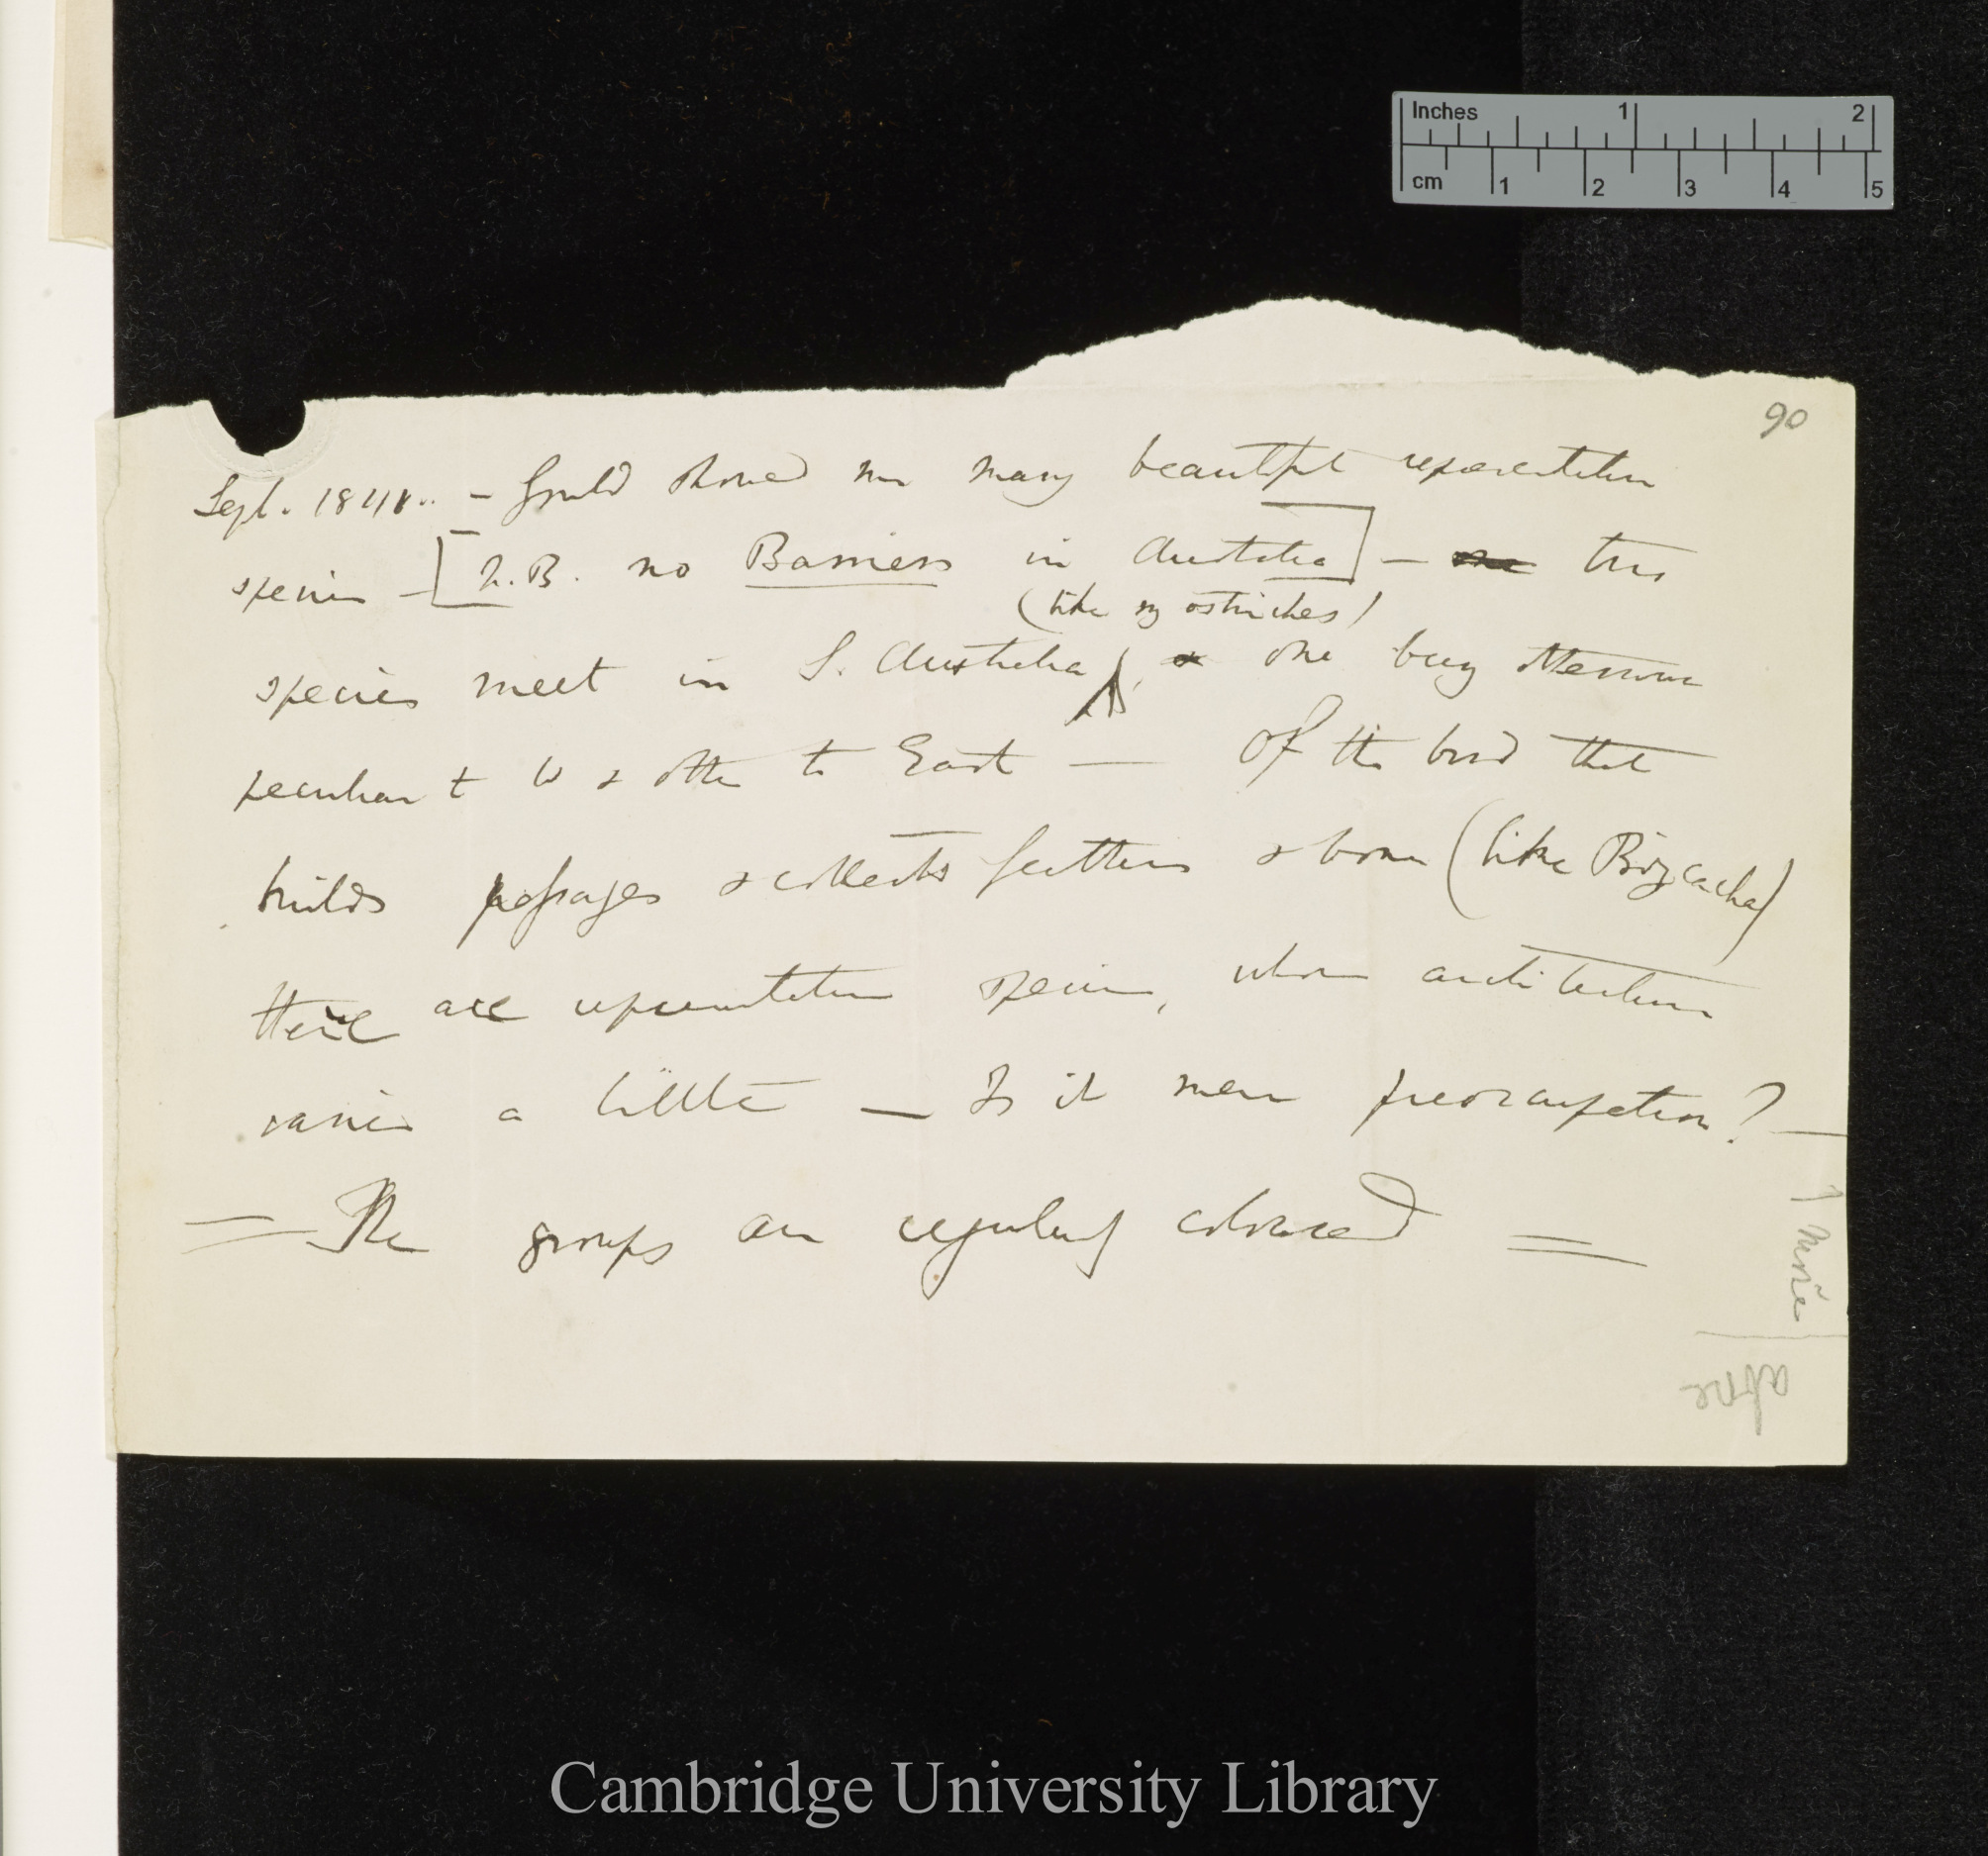 Inches 1 2
cm 1 2 3 4 5
90
Sept. 1841. – Gould showed me many beautiful representative
species – [N.B. no Barriers in Australia] – two
(like my ostriches)
species meet in S. Australia, one being otherwise
peculiar to W & other to East — Of the bird that
builds passages & collects feathers & bones (like Bizcacha)
there are representative species, whose architecture
varies a little — Is it mere preoccupation? —
= The groups are regularly coloured =
Cambridge University Library